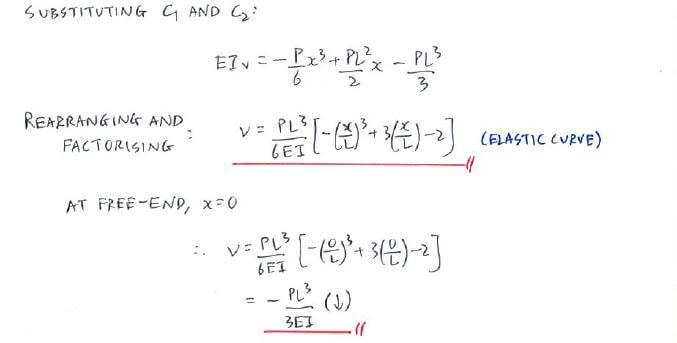 SUBSTITUTING C₁ AND C₂:
EIv = -P/6 x³ + PL²/2 x - PL³/3
REARRANGING AND
FACTORISING : v = PL³/6EI [-(x/L)³ + 3(x/L) - 2] (ELASTIC CURVE)
AT FREE-END, x=0
∴ v = PL³/6EI [-(0/L)³ + 3(0/L) - 2]
= - PL³/3EI (↓)